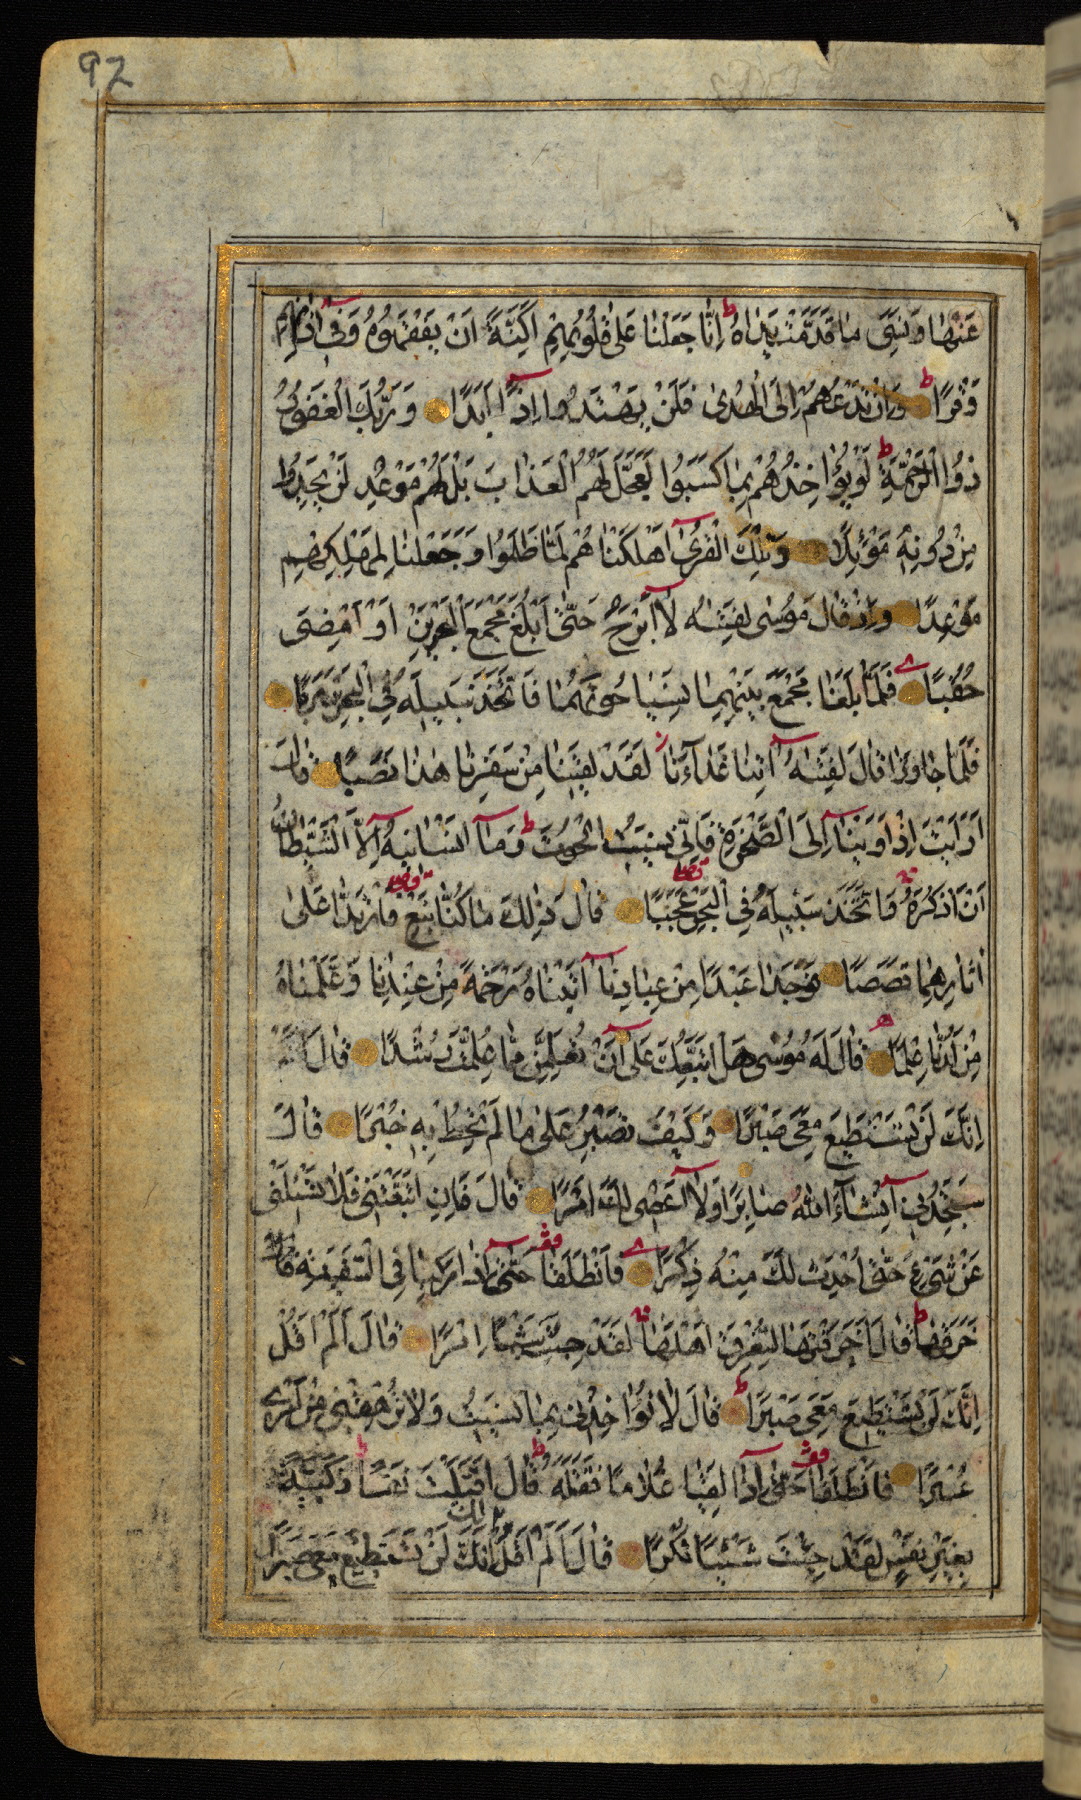 92
عَنْهَا وَنَسِىَ مَا قَدَّمَتْ يَدَاهُ ط اِنَّا جَعَلْنَا عَلٰى قُلُوْبِهِمْ اَكِنَّةً اَنْ يَفْقَهُوهُ وَفِى اٰذَانِهِمْ
وَقْرًا ط وَاِنْ تَدْعُهُمْ اِلَى الْهُدٰى فَلَنْ يَهْتَدُوا اِذًا اَبَدًا وَرَبُّكَ الْغَفُوْرُ
ذُوا الرَّحْمَةِ ط لَوْ يُؤٰاخِذُهُمْ بِمَا كَسَبُوا لَعَجَّلَ لَهُمُ الْعَذَابَ بَلْ لَهُمْ مَوْعِدٌ لَنْ يَجِدُوا
مِنْ دُونِهٖ مَوْئِلًا وَتِلْكَ الْقُرٰى اَهْلَكْنَاهُمْ لَمَّا ظَلَمُوا وَجَعَلْنَا لِمَهْلِكِهِمْ
مَوْعِدًا وَاِذْ قَالَ مُوسٰى لِفَتٰيهُ لَا اَبْرَحُ حَتّٰى اَبْلُغَ مَجْمَعَ الْبَحْرَيْنِ اَوْ اَمْضِىَ
حُقُبًا فَلَمَّا بَلَغَا مَجْمَعَ بَيْنِهِمَا نَسِيَا حُوتَهُمَا فَاتَّخَذَ سَبِيلَهُ فِى الْبَحْرِ سَرَبًا
فَلَمَّا جَاوَزَا قَالَ لِفَتٰيهُ اٰتِنَا غَدَاءَنَا لَقَدْ لَقِينَا مِنْ سَفَرِنَا هٰذَا نَصَبًا قَالَ
اَرَاَيْتَ اِذْ اَوَيْنَا اِلَى الصَّخْرَةِ فَاِنِّى نَسِيتُ الْحُوتَ ط وَمَا اَنْسَانِيهُ اِلَّا الشَّيْطَانُ
اَنْ اَذْكُرَهُ وَاتَّخَذَ سَبِيلَهُ فِى الْبَحْرِ عَجَبًا قَالَ ذٰلِكَ مَا كُنَّا نَبْغِ فَارْتَدَّا عَلٰى
اٰثَارِهِمَا قَصَصًا فَوَجَدَا عَبْدًا مِنْ عِبَادِنَا اٰتَيْنَاهُ رَحْمَةً مِنْ عِنْدِنَا وَعَلَّمْنَاهُ
مِنْ لَدُنَّا عِلْمًا قَالَ لَهُ مُوسٰى هَلْ اَتَّبِعُكَ عَلٰى اَنْ تُعَلِّمَنِ مِمَّا عُلِّمْتَ رُشْدًا قَالَ
اِنَّكَ لَنْ تَسْتَطِيعَ مَعِىَ صَبْرًا وَكَيْفَ تَصْبِرُ عَلٰى مَا لَمْ تُحِطْ بِهِ خُبْرًا قَالَ
سَتَجِدُنِى اِنْشَاءَ اللهُ صَابِرًا وَلَا اَعْصِى لَكَ اَمْرًا قَالَ فَاِنِ اتَّبَعْتَنِى فَلَا تَسْئَلْنِى
عَنْ شَىْءٍ حَتّٰى اُحْدِثَ لَكَ مِنْهُ ذِكْرًا فَانْطَلَقَا حَتّٰى اِذَا رَكِبَا فِى السَّفِينَةِ
خَرَقَهَا ط قَالَ اَخَرَقْتَهَا لِتُغْرِقَ اَهْلَهَا لَقَدْ جِئْتَ شَيْئًا اِمْرًا قَالَ اَلَمْ اَقُلْ
اِنَّكَ لَنْ تَسْتَطِيعَ مَعِىَ صَبْرًا قَالَ لَا تُؤٰاخِذْنِى بِمَا نَسِيتُ وَلَا تُرْهِقْنِى مِنْ اَمْرِى
عُسْرًا فَانْطَلَقَا حَتّٰى اِذَا لَقِيَا غُلَامًا فَقَتَلَهُ ط قَالَ اَقَتَلْتَ نَفْسًا زَكِيَّةً
بِغَيْرِ نَفْسٍ لَقَدْ جِئْتَ شَيْئًا نُكْرًا قَالَ اَلَمْ اَقُلْ لَكَ اِنَّكَ لَنْ تَسْتَطِيْعَ مَعِىَ صَبْرًا